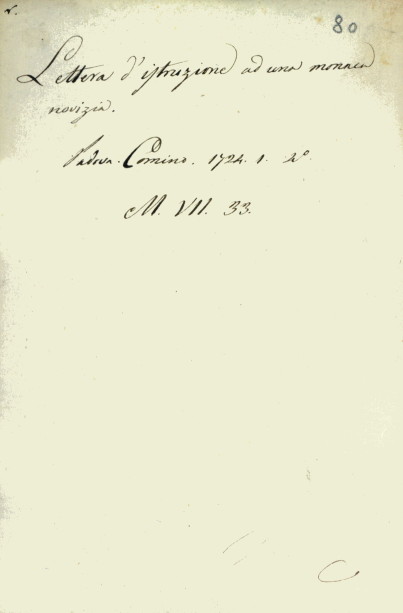 r.
80
Lettera d'istruzione ad una monaca
novizia.
Padova. Comino. 1724. 1. 4°.
M. VII. 33.